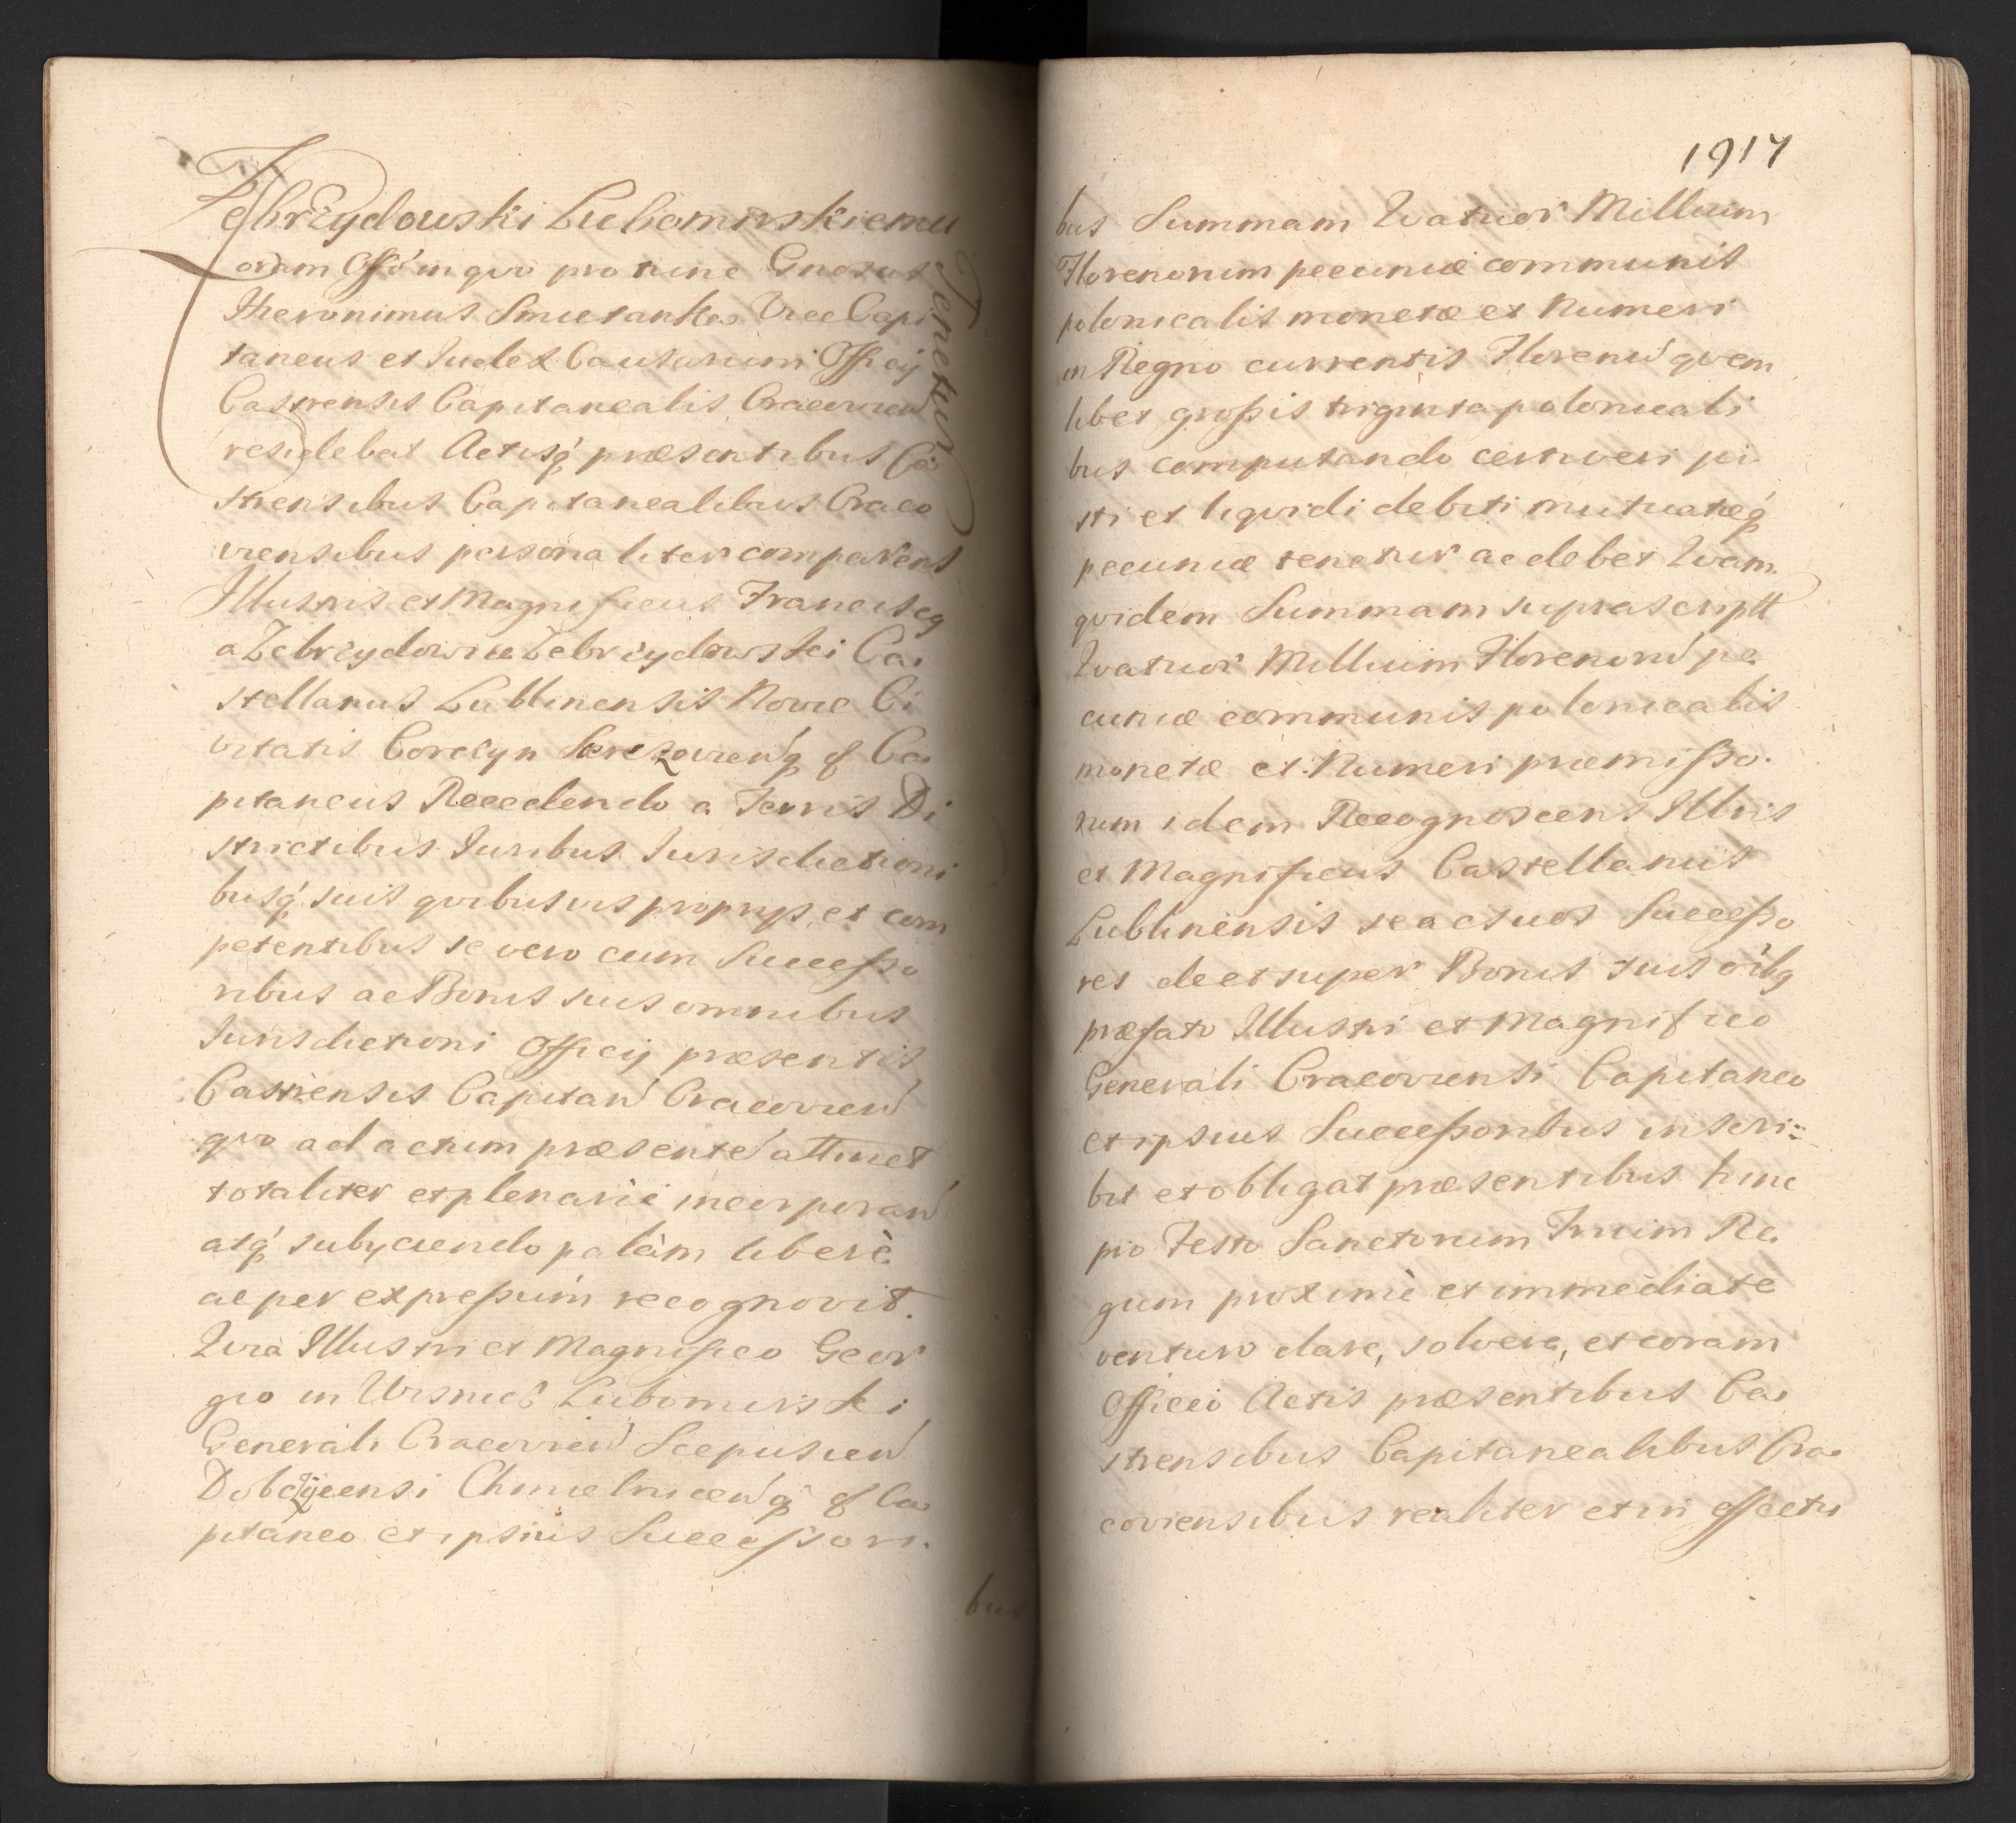 Zebrzydowski Lubomirskiemu
Tenetur
oram Offo in quo pro tunc Gnosus
Hieronimus Smietanka Vice Capi
taneus et Iudex Causarum Officij
Castrensis Capitanealis Cracovien
residebat Actisq presentibus Ca
strensibus Capitanealibus Craco
viensibus personaliter comparens
Illustris et Magnificus Franciscq
a Zebrzydowice Zebrzydowski Ca
stellanus Lublinensis Novae Ci
vitatis Corczyn q Ca
pitaneus Recedendo a Terris Di
strictibus Iuribus Iurisdictioni
busq suis quibusvis proprijs et com
petentibus se vero cum Successo
ribus ac Bonis suis omnibus
Iurisdictioni Officij præsentis
Castrensis Capitan Cracovien
quo ad actum præsente attinet
totaliter et plenarié incorporan
atq subyciendo palàm liberè
ac per expressúm recognovit.
Quia Illustri et Magnifico Geor
gio in Wisnicz Lubomirski
Generali Cracovien Scepusien
Dobczycensi Chmielnicen q Ca
pitaneo et ipsius Successori.
bus
1917
bus Summam Quatuor Millium
Florenorum pecuniæ communis
polonicalis monetæ et Numeri
in Regno currentis Florenu quem
libet grossis triginta polonicali
bus computando certi veri ju
sti et liquidi debiti mutuatæq
pecuniæ tenetur ac debet Quam
quidem Summam suprascriptt
Quatuor Millium Florenoru pe
cuniæ communis polonicalis
monetæ et Numeri præmisso.
rum idem Recognoscens Illris
et Magnificus Castellanus
Lublinensis se ac suos Successo
res de et super Bonis suis oibq
præfato Illustri et Magnifico
Generali Cracoviensi Capitaneo
et ipsius Successoribus inscri=
bit et obligat præsentibus hinc
pro Festo Sanctorum Trium Re
gum proximè et immediatè
venturo dare, solvere, et coram
Officio Actis præsentibus Ca
strensibus Capitanealibus Cra
coviensibus realiter et in effectu